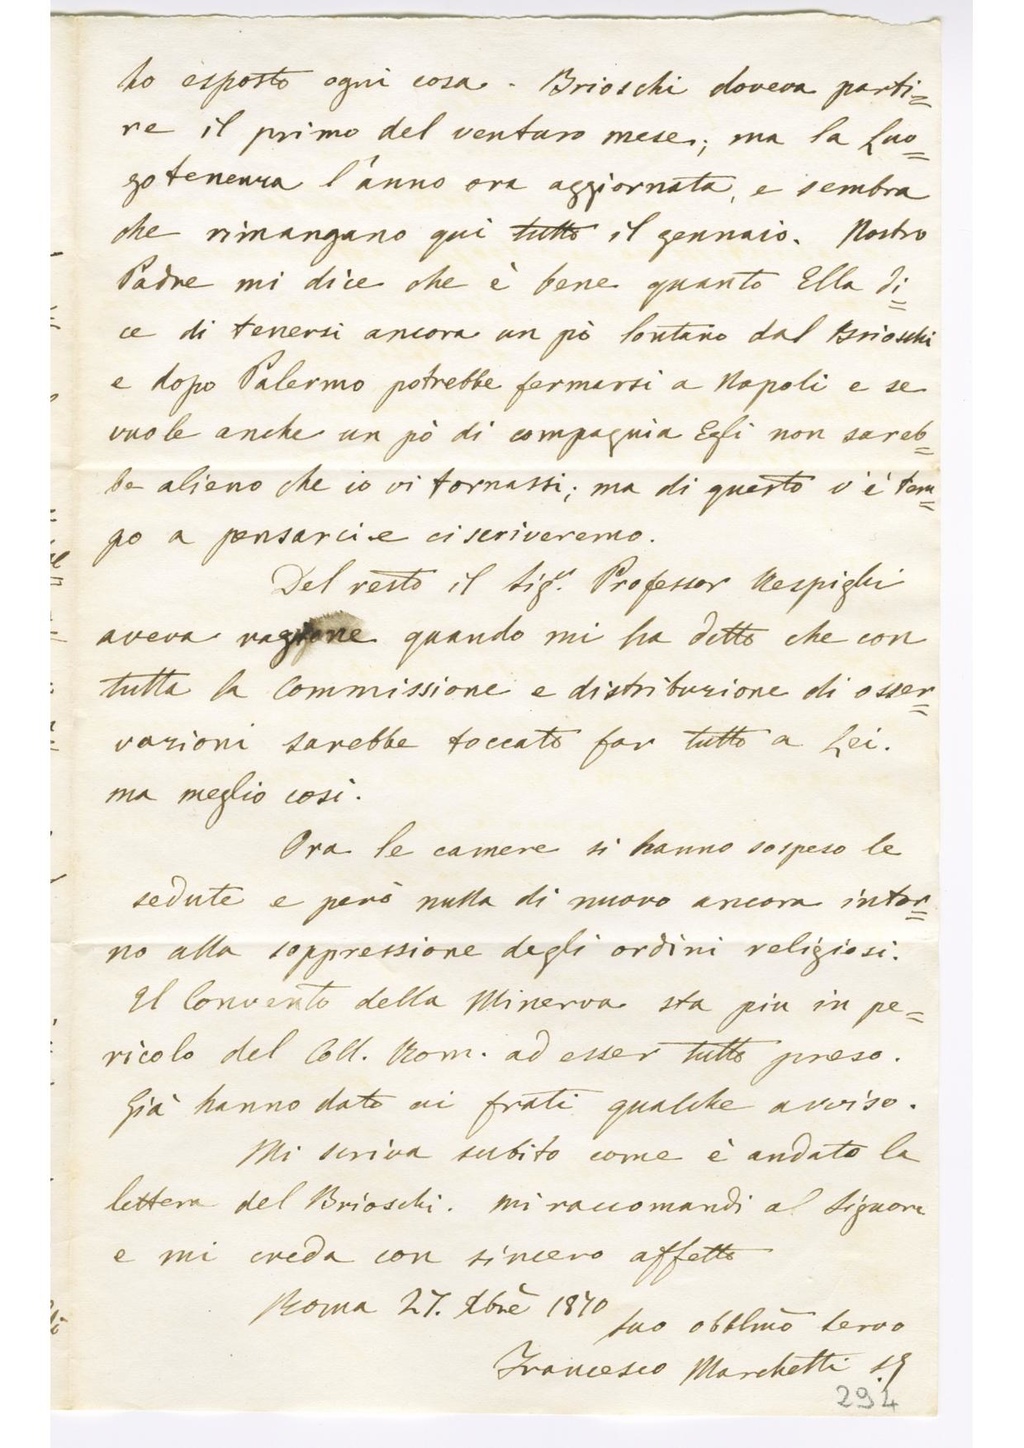 ho esposto ogni cosa. Brioschi doveva parti=
re il primo del venturo mese; ma la Luo=
gotenenza l'anno ora aggiornata, e sembra
che rimangano qui tutto il gennaio. Nostro
Padre mi dice che è bene quanto Ella di=
ce di tenersi ancora un pò lontano dal Brioschi
e dopo Palermo potrebbe fermarsi a Napoli e se
vuole anche un pò di compagnia Egli non sareb=
be alieno che io vi tornassi; ma di questo v'è tem=
po a pensarci e ci scriveremo.
Del resto il Sigr. Professor Respighi
aveva ragione quando mi ha detto che con
tutta la Commissione e distribuzione di osser=
vazioni sarebbe toccato far tutto a Lei.
ma meglio così.
Ora le camere si hanno sospeso le
sedute e però nulla di nuovo ancora intor=
no alla soppressione degli ordini religiosi.
Il Convento della Minerva sta piu in pe=
ricolo del Coll. Rom. ad esser tutto preso.
Già hanno dato ai frati qualche avviso.
Mi scriva subito come è andato la
lettera del Brioschi. mi raccomandi al Signore
e mi creda con sincero affetto
Roma 27. Xbrè 1870
suo obblmo servo
Francesco Marchetti
294